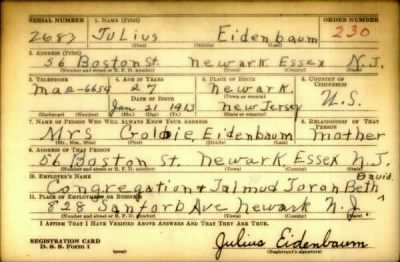 SERIAL NUMBER 1. NAME (Print) ORDER NUMBER
2683 Julius Eidenbaum 230
(First) (Middle) (Last)
2. ADDRESS (Print)
56 Boston St. Newark Essex N.J.
(Number and street or R. F. D. number) (Town) (County) (State)
3. TELEPHONE 4. AGE IN YEARS 5. PLACE OF BIRTH 6. COUNTRY OF CITIZENSHIP
Maa-6654 27 Newark
DATE OF BIRTH (Town or county)
Jan 21 1913 New Jersey U.S.
(Mo.) (Day) (Yr.) (State or country)
7. NAME OF PERSON WHO WILL ALWAYS KNOW YOUR ADDRESS 8. RELATIONSHIP OF THAT PERSON
Mrs Goldie Eidenbaum Mother
(Mr., Mrs., Miss) (First) (Middle) (Last)
9. ADDRESS OF THAT PERSON
56 Boston St. Newark Essex N.J.
(Number and street or R. F. D. number) (Town) (County) (State)
10. EMPLOYER'S NAME David
Congregation + Talmud Torah Beth
11. PLACE OF EMPLOYMENT OR BUSINESS
828 Sanford Ave Newark N.J.
(Number and street or R. F. D. number) (Town) (County) (State)
I AFFIRM THAT I HAVE VERIFIED ABOVE ANSWERS AND THAT THEY ARE TRUE.
REGISTRATION CARD
D. S. S. Form 1 Julius Eidenbaum
(Registrant's signature)